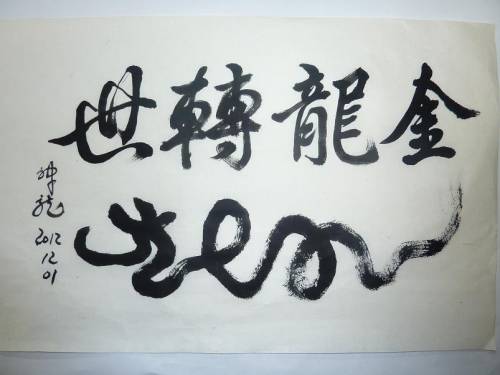 金龍轉世
神龙
2012
12
01